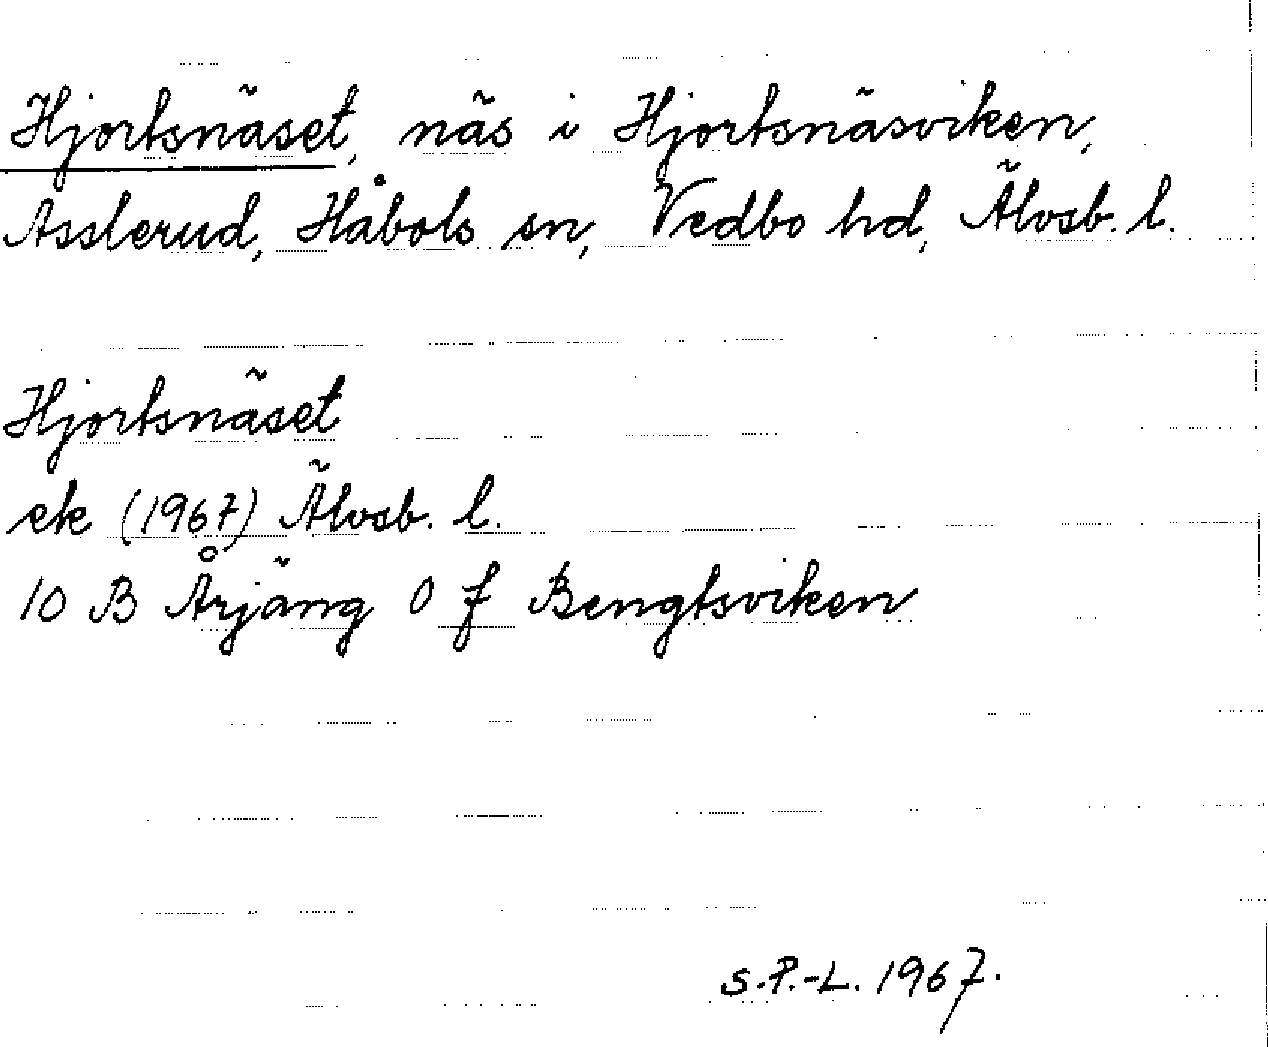 Hjortsnäset, näs i Hjortsnäsviken,
Asslerud, Håbols sn, Vedbo hd, Älvsb. l.
Hjortsnäset
ek (1967) Älvsb. l.
10 B Årjäng 0 f Bengtsviken
S.P.-L. 1967.